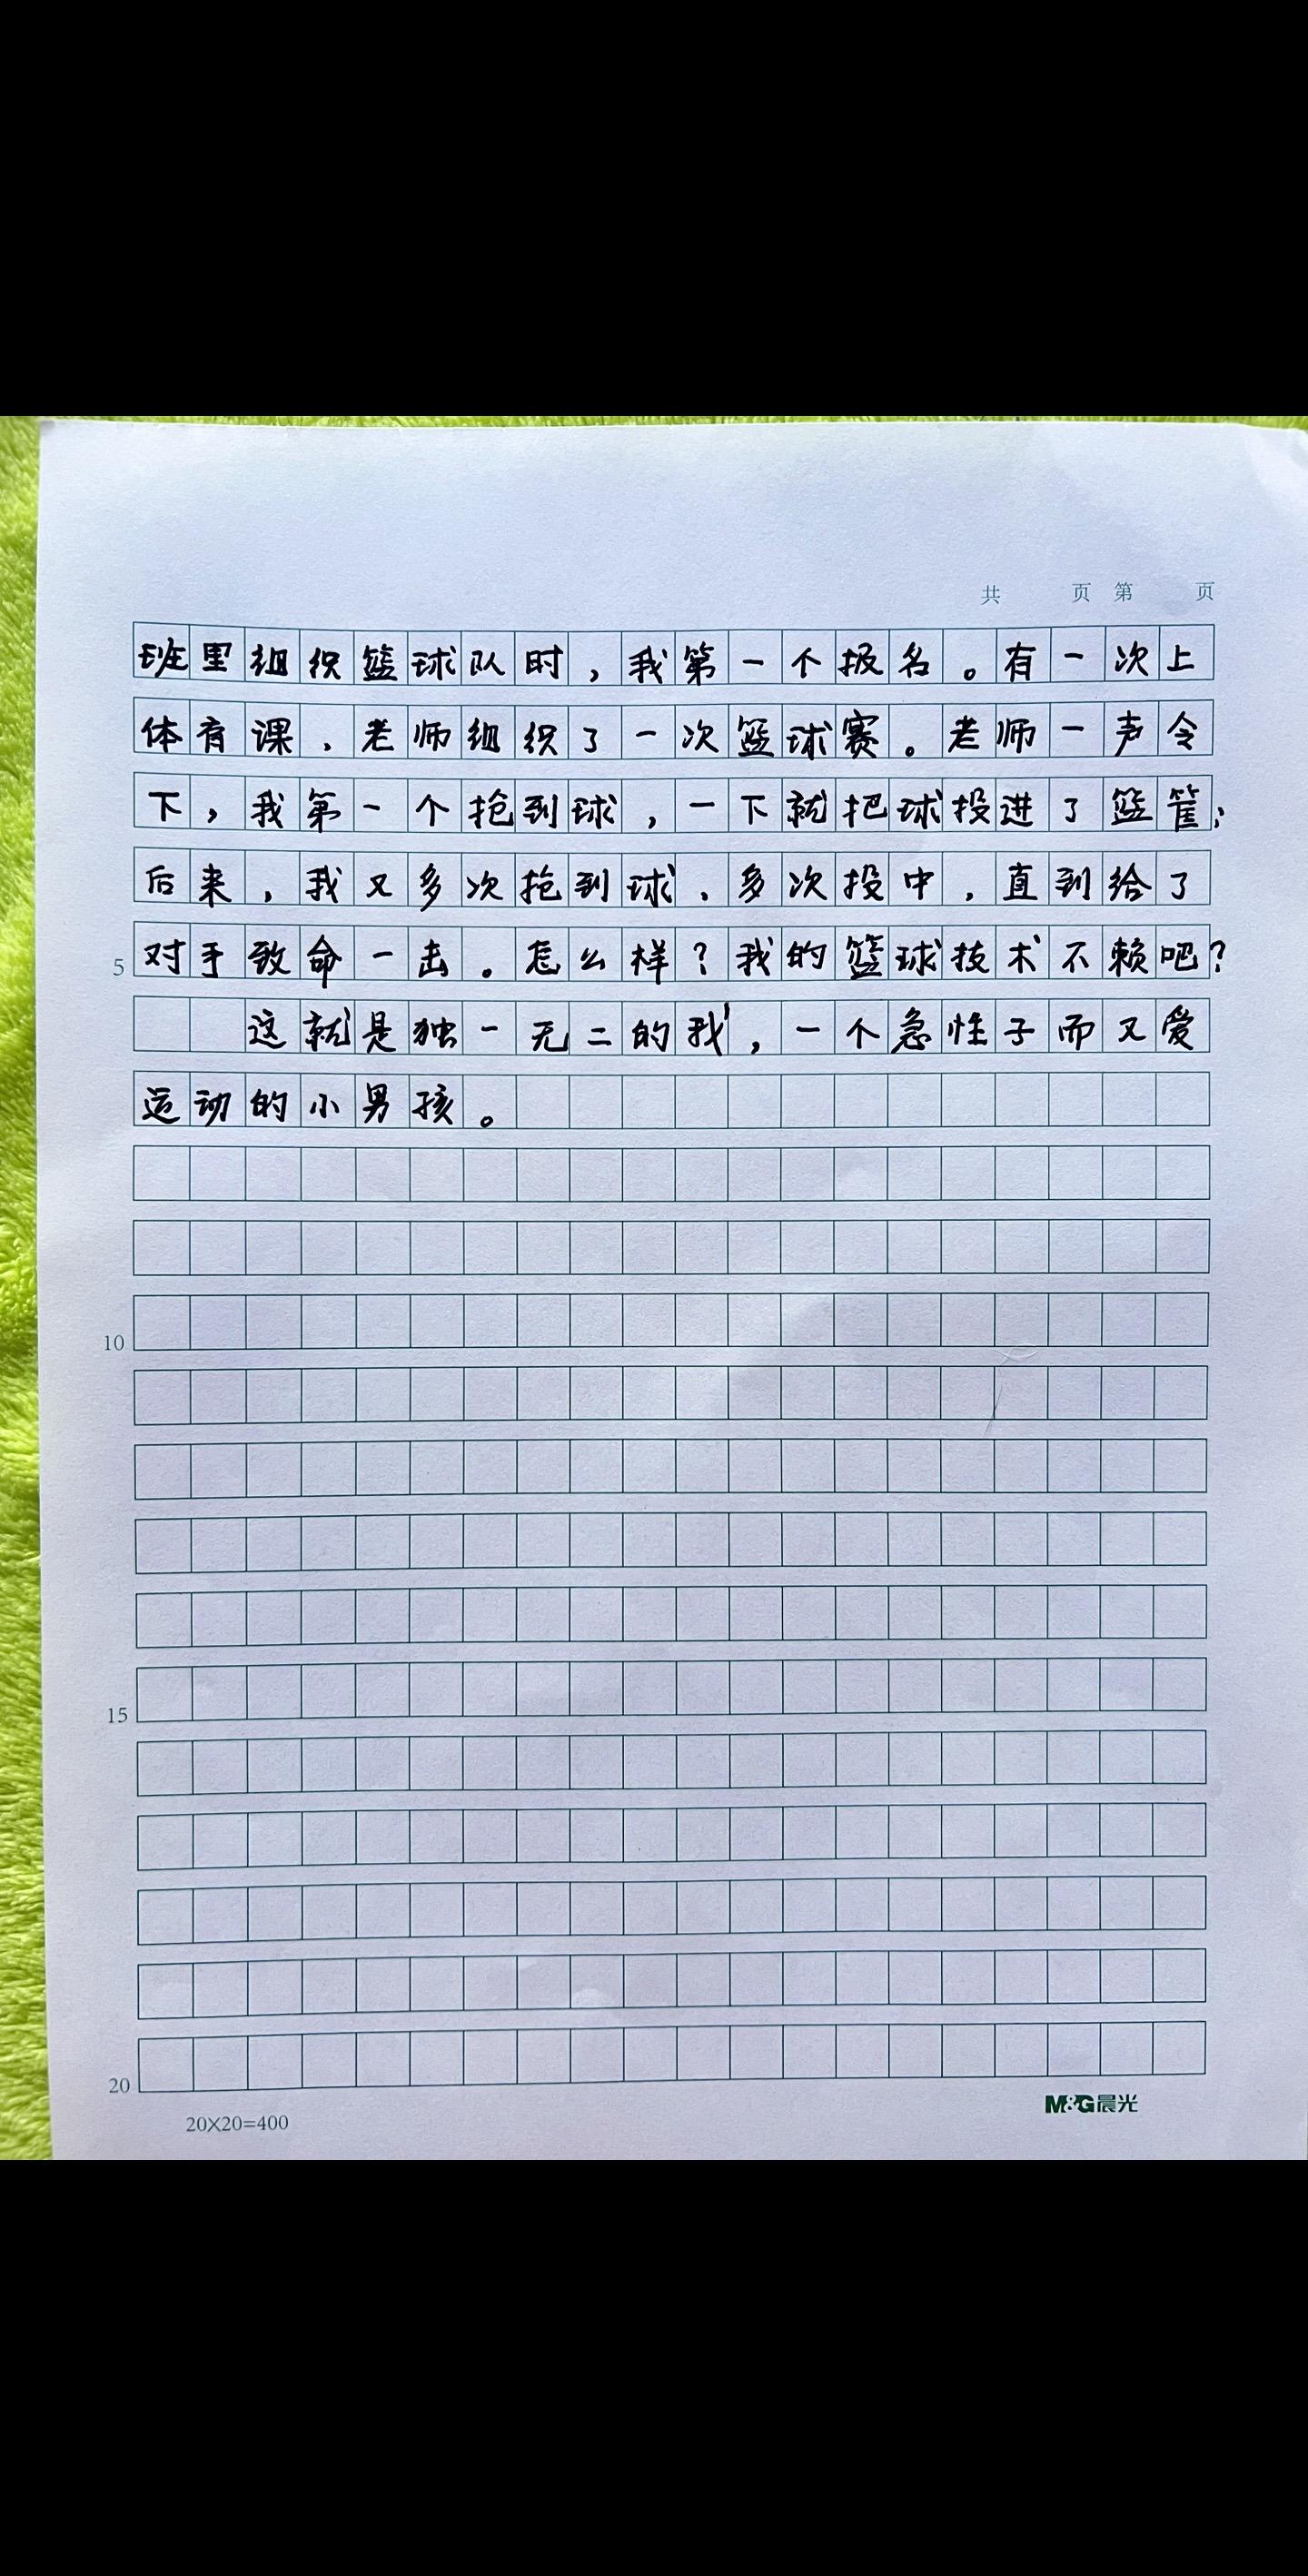 共 页 第 页
班里组织篮球队时，我第一个报名。有一次上
体育课，老师组织了一次篮球赛。老师一声令
下，我第一个抢到球，一下就把球投进了篮筐；
后来，我又多次抢到球，多次投中，直到给了
5 对手致命一击。怎么样？我的篮球技术不赖吧？
这就是独一无二的我，一个急性子而又爱
运动的小男孩。
10
15
20
20X20=400 M&G晨光